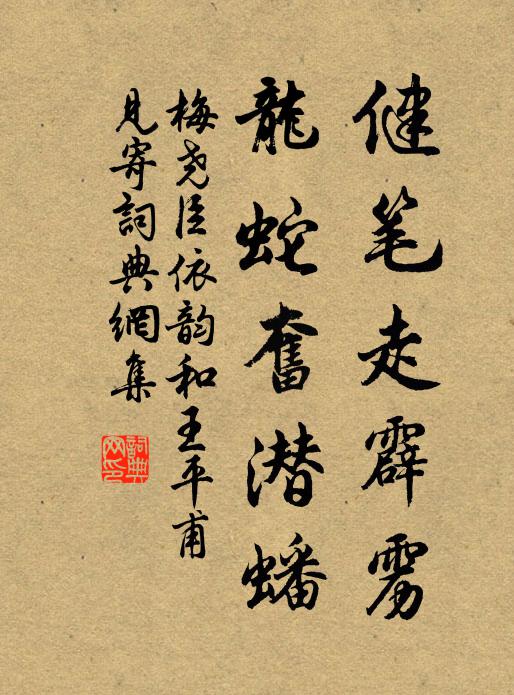 健笔走霹雳
龍蛇奮潜蟠
梅尧臣依韵和王平甫
見寄詞典網集
詞典网印